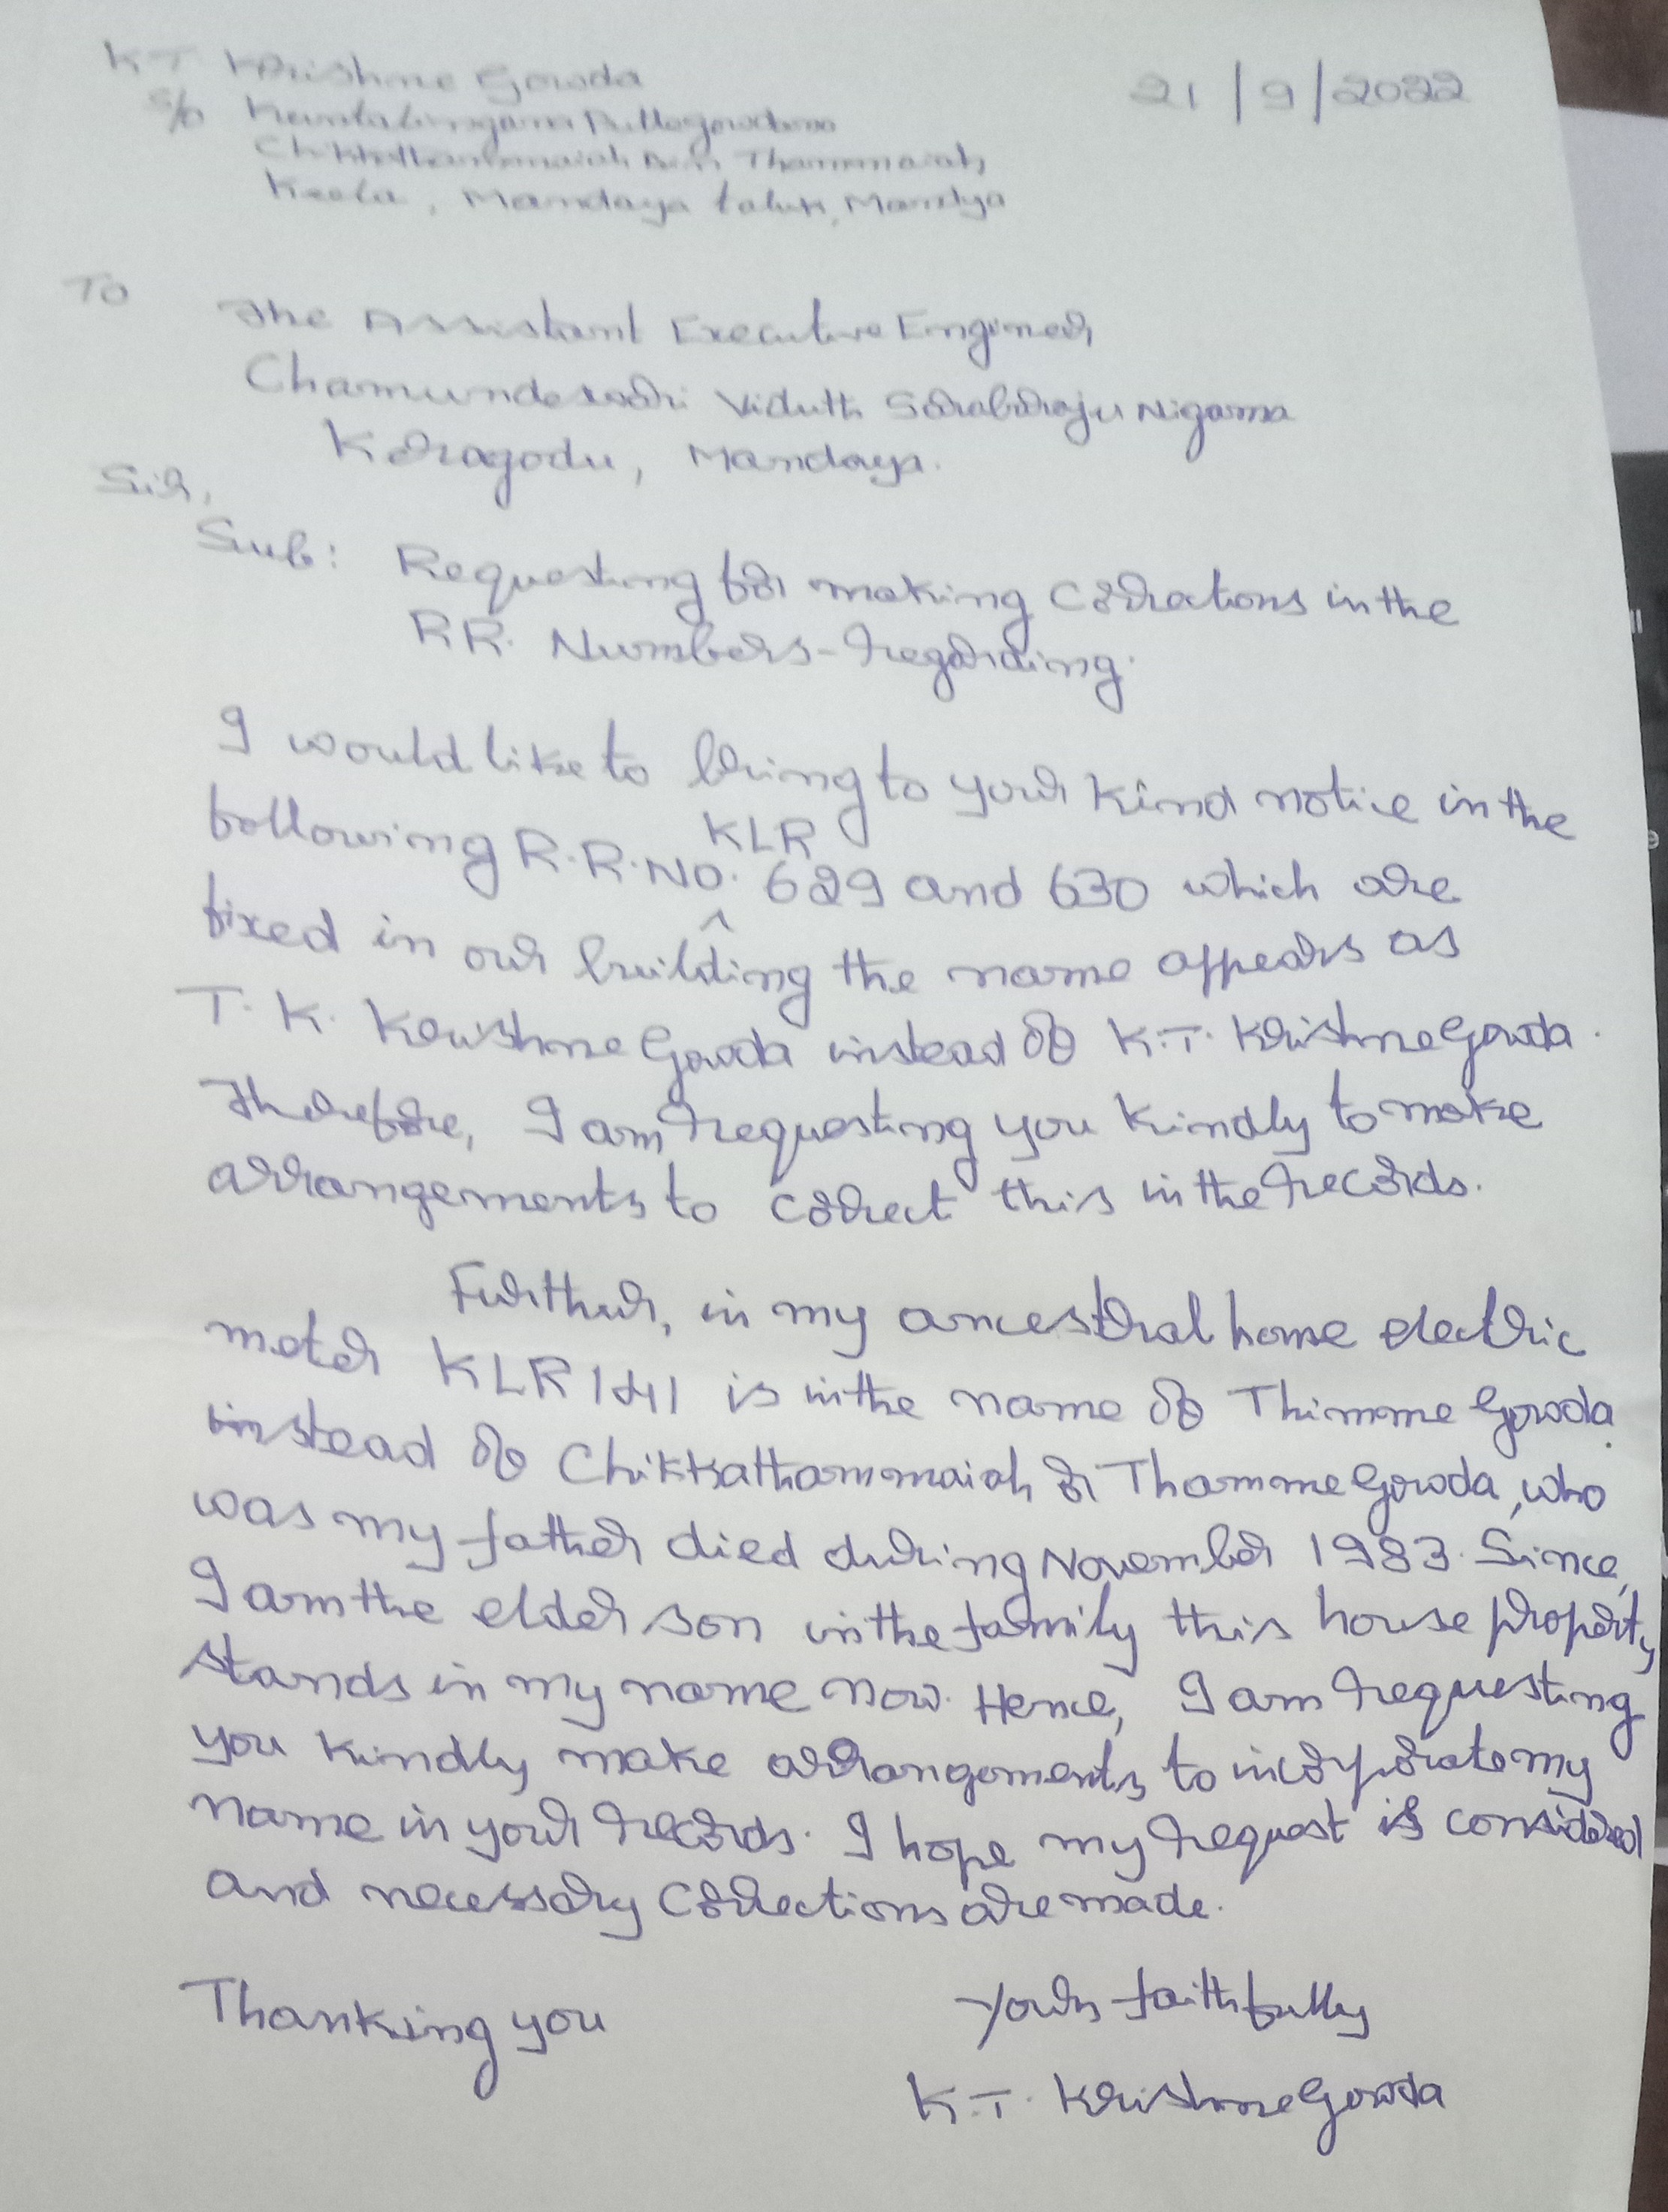 KT Krishne Gowda
21/9/2022
S/o
Chikkathammaiah Thammaiah
Keela, Mandaya taluk, Mandya
To
The Assistant Executive Engineer,
Chamundeswari Viduth Sarabaraju Nigama
Keragodu, Mandaya.
Sir,
Sub: Requesting for making corrections in the
RR. Numbers - regarding.
I would like to bring to your kind notice in the
following R.R.No. KLR 629 and 630 which are
fixed in our building the name appears as
T. K. Krishne Gowda instead of K.T. Krishne Gowda.
Therefore, I am requesting you kindly to make
arrangements to correct this in the records.
Further, in my ancestral home electric
meter KLR 141 is in the name of Thimme Gowda
instead of Chikkathammaiah or Thamme Gowda, who
was my father died during November 1983. Since,
I am the elder son in the family this house property
stands in my name now. Hence, I am requesting
you kindly make arrangements to incorporate my
name in your records. I hope my request is considered
and necessary corrections are made.
Thanking you
Yours faithfully
K.T. Krishne Gowda